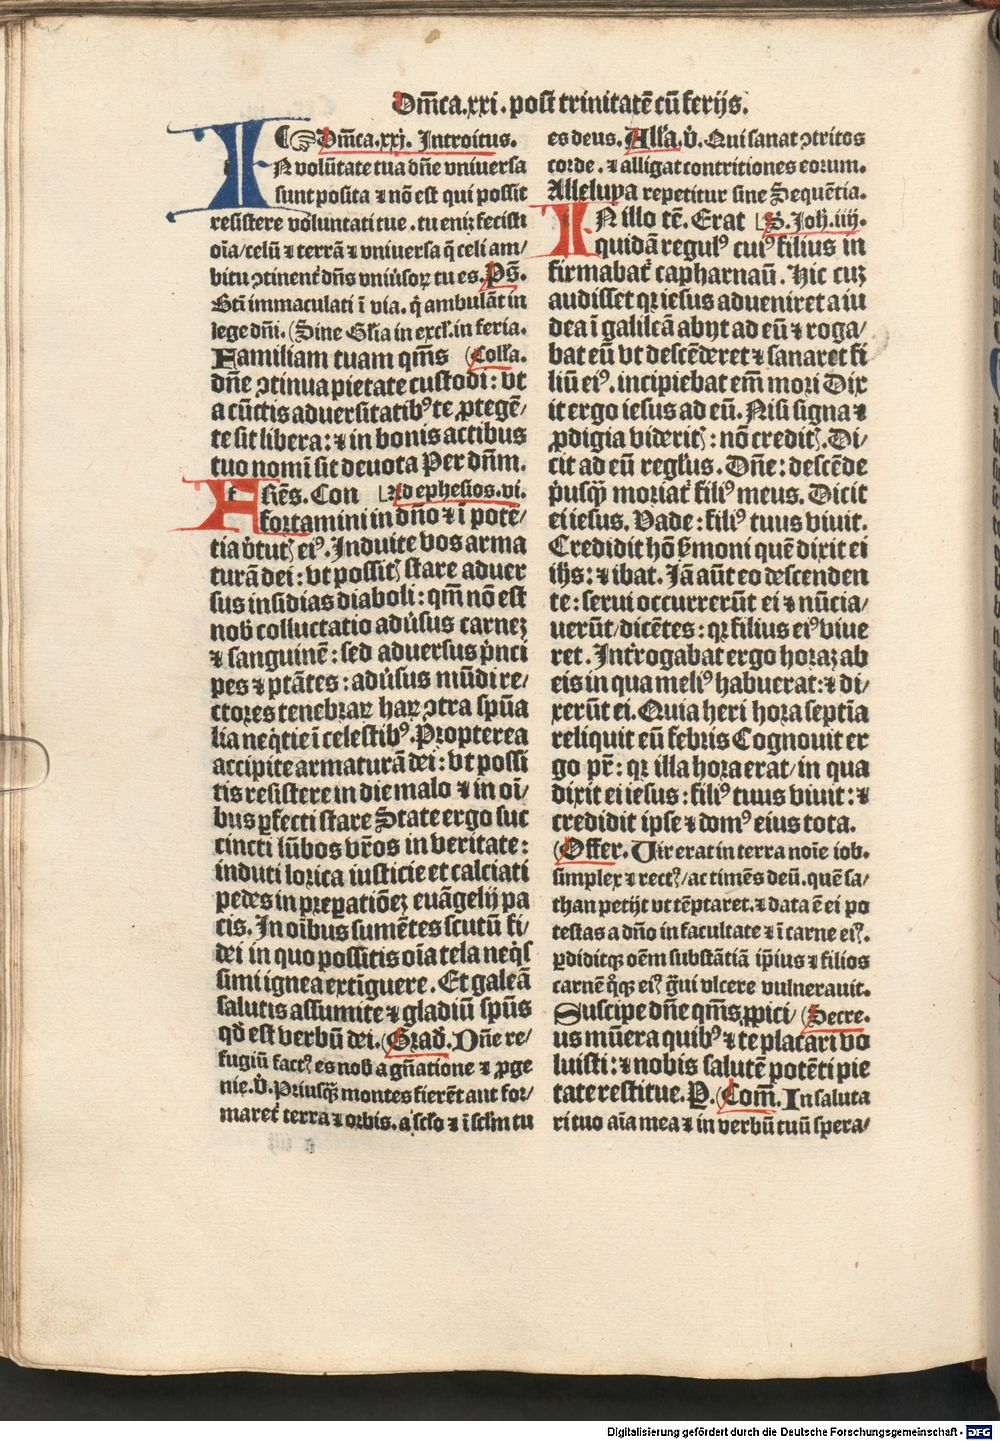 Dm̄ca.xxi. post trinitatē cū ferijs.
Dm̄ca.xxj. Introitus.
IN volūtate tua dn̄e vniuersa
sunt posita ⁊ nō est qui possit
resistere voluntati tue. tu eniꝫ fecisti
oīa/celū ⁊ terrā ⁊ vniuersa q̄ celi am/
bitu ꝯtinent᷑ dn̄s vniu᷑soꝝ tu es. Ps̄.
Bt̄i immaculati ī via. q̇ ambulāt in
lege dn̄i. (Sine Gl̄ia in excl̓. in feria.
Familiam tuam qm̄s (Coll̄a.
dn̄e ꝯtinua pietate custodi: vt
a cūctis aduersitatibꝰ te ꝓtegē/
te sit libera: ⁊ in bonis actibus
tuo nomī sit deuota Per dn̄m.
Frēs. Con Ad ephesios. vi.
fortamini in dn̄o ⁊ ī pote/
tia v᷑tutꝭ eiꝰ. Induite vos arma
turā dei: vt possitꝭ stare aduer
sus insidias diaboli: qm̄ nō est
nob̄ colluctatio adu᷑sus carneꝫ
⁊ sanguinē: sed aduersus pͥnci
pes ⁊ ptātes: adu᷑sus mūdi re/
ctores tenebraꝝ haꝝ ꝯtra spūa
lia neq̇tie ī celestibꝰ. Propterea
accipite armaturā dei: vt possi
tis resistere in die malo ⁊ in oī/
bus ꝑfecti stare State ergo suc
cincti lūbos vr̄os in veritate:
induti lorica iusticie et calciati
pedes in preꝑatiōeꝫ euāgelij pa
cis. In oībus sumētes scutū fi/
dei in quo possitis oīa tela neq̇s
simi ignea extīguere. Et galeā
salutis assumite ⁊ gladiū spūs
qd̄ est verbū dei. (Grad̄. Dn̄e re/
fugiū factꝰ es nob̄ a gn̄atione ⁊ ꝓge
nie. v̄. Priusq̄ montes fierēt aut for/
maret᷑ terra ⁊ orbis. a sc̄lo ⁊ ī sc̄lm tu
es deus. All̄a. v̄. Qui sanat ꝯtritos
corde. ⁊ alligat contritiones eorum.
Alleluya repetitur sine Sequētia.
IN illo tē. Erat S. Joh. iiij.
quidā regulꝰ cuiꝰ filius in
firmabat᷑ capharnaū. Hic cuꝫ
audisset qꝛ iesus adueniret a iu
dea ī galileā abijt ad eū ⁊ roga/
bat eū vt descēderet ⁊ sanaret fi
liū eiꝰ. incipiebat em̄ mori Dix
it ergo iesus ad eū. Nisi signa ⁊
ꝓdigia videritꝭ: nō creditꝭ. Di/
cit ad eū regl̄us. Dn̄e: descēde
pͥusq̄ꝫ moriat᷑ filiꝰ meus. Dicit
ei iesus. Vade: filiꝰ tuus viuit.
Credidit hō s᷑moni quē dixit ei
ih̄s: ⁊ ibat. Jā aūt eo descenden
te: serui occurrerūt ei ⁊ nūcia/
uerūt/dicētes: qꝛ filius eiꝰ viue
ret. Int᷑rogabat ergo horaꝫ ab
eis in qua meliꝰ habuerat: ⁊ di/
xerūt ei. Quia heri hora septīa
reliquit eū febris Cognouit er
go pr̄: qꝛ illa hora erat/in qua
dixit ei iesus: filiꝰ tuus viuit: ⁊
credidit ipse ⁊ domꝰ eius tota.
(Offer. Vir erat in terra noīe iob.
simplex ⁊ rectꝰ/ac timēs deū. quē sa/
than petijt vt tēptaret. ⁊ data ē ei po
testas a dn̄o in facultate ⁊ ī carne eiꝰ.
ꝑdiditqꝫ oēm substātiā ip̄ius ⁊ filios
carnē q̊qꝫ eiꝰ g̈ui vlcere vulnerauit.
Suscipe dn̄e qm̄s ꝓpici/ (Secre.
us mūera quibꝰ ⁊ te placari vo
luisti: ⁊ nobis salutē potēti pie
tate restitue. P. (Com̄. In saluta
ri tuo aīa mea ⁊ in verbū tuū spera/
Digitalisierung gefördert durch die Deutsche Forschungsgemeinschaft - DFG